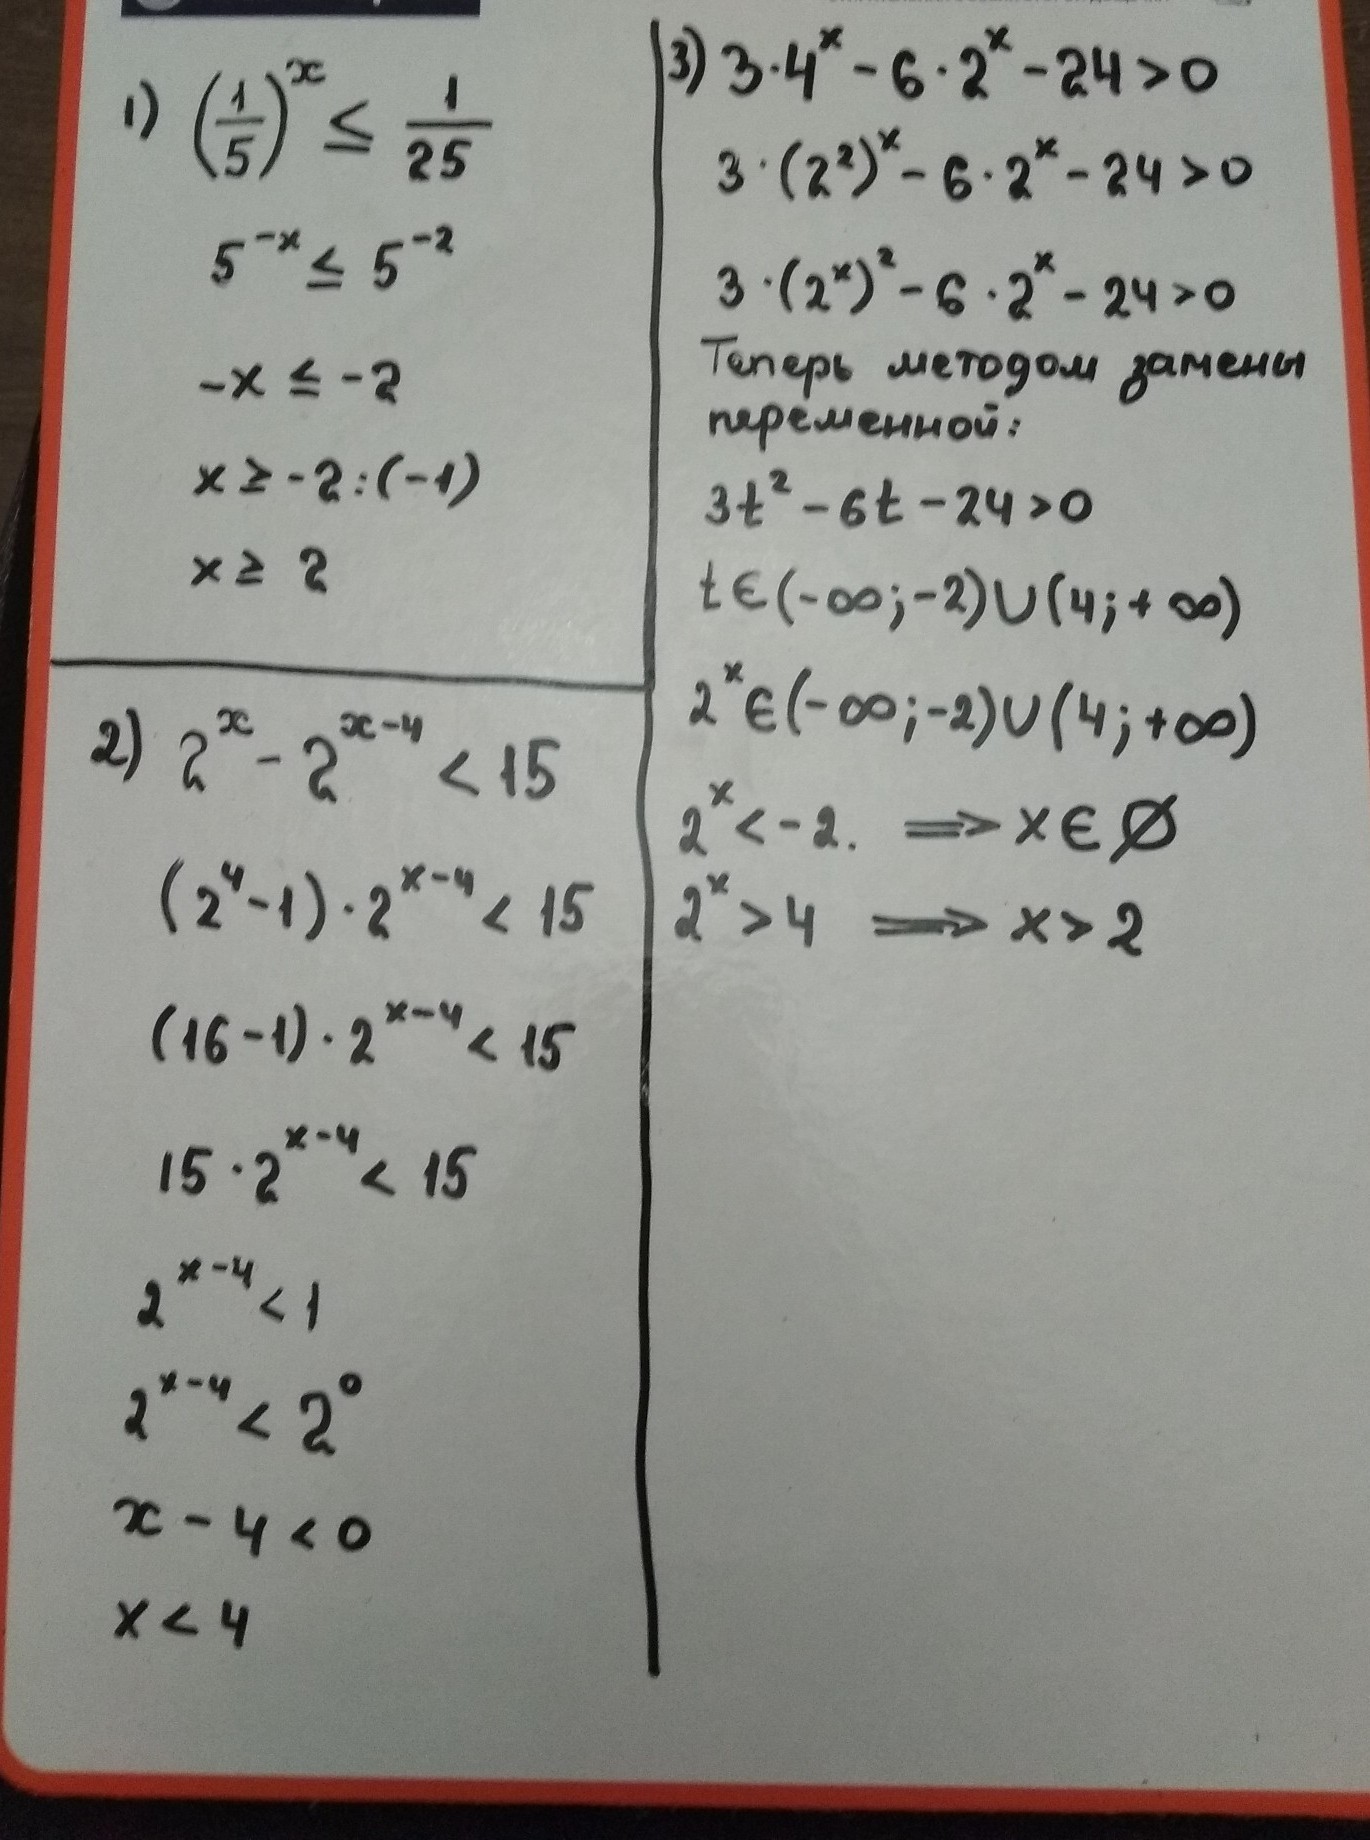 1) (1/5)^x ≤ 1/25
5^(-x) ≤ 5^(-2)
-x ≤ -2
x ≥ -2:(-1)
x ≥ 2
2) 2^x - 2^(x-4) < 15
(2^4-1)·2^(x-4) < 15
(16-1)·2^(x-4) < 15
15·2^(x-4) < 15
2^(x-4) < 1
2^(x-4) < 2^0
x - 4 < 0
x < 4
3) 3·4^x - 6·2^x - 24 > 0
3·(2^2)^x - 6·2^x - 24 > 0
3·(2^x)^2 - 6·2^x - 24 > 0
Теперь методом замены
переменной:
3t^2 - 6t - 24 > 0
t∈(-∞;-2)∪(4;+∞)
2^x∈(-∞;-2)∪(4;+∞)
2^x < -2. ⟹ x∈∅
2^x > 4 ⟹ x > 2